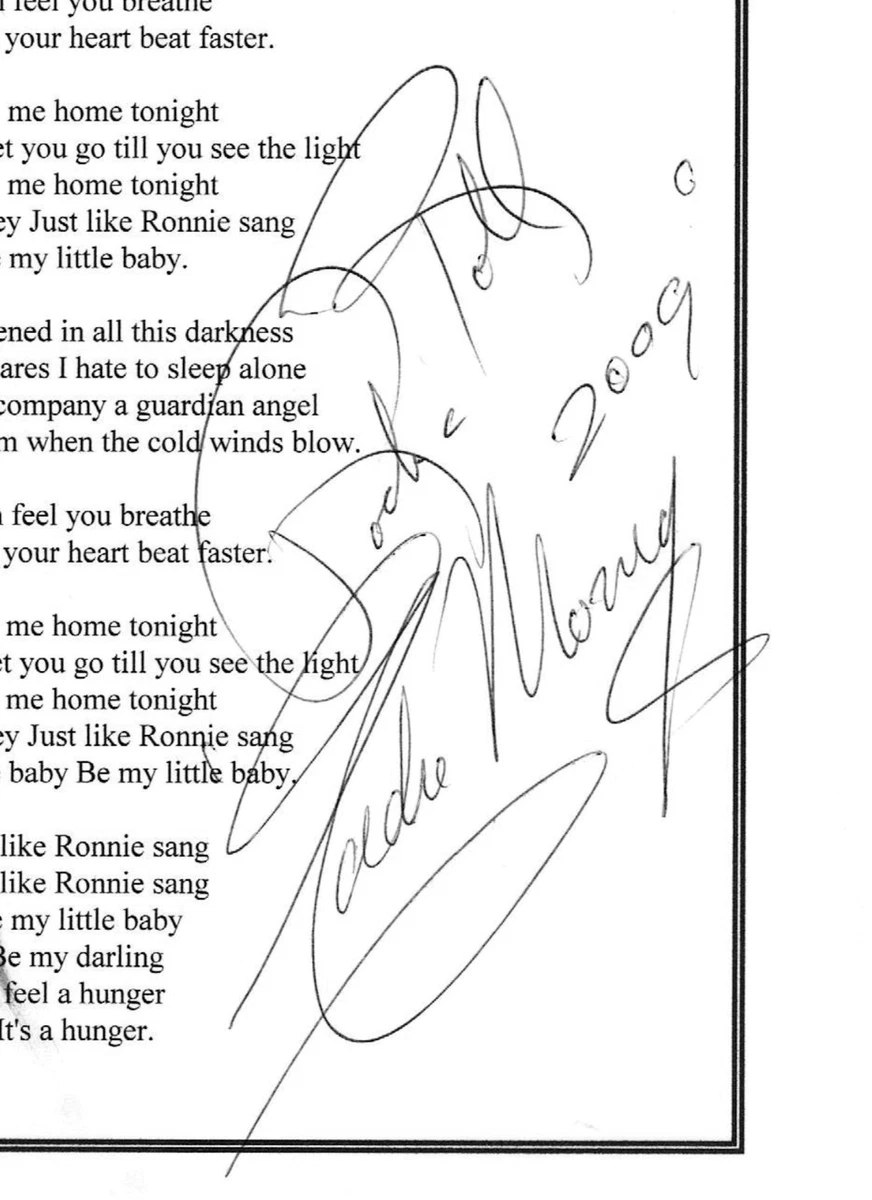 feel you breathe
your heart beat faster.
me home tonight
et you go till you see the light
me home tonight
ey Just like Ronnie sang
my little baby.
ened in all this darkness
ares I hate to sleep alone
company a guardian angel
m when the cold winds blow.
feel you breathe
your heart beat faster.
me home tonight
et you go till you see the light
me home tonight
ey Just like Ronnie sang
baby Be my little baby.
like Ronnie sang
like Ronnie sang
my little baby
Be my darling
feel a hunger
It's a hunger.
Rock
Roll
2009
Eddie Money